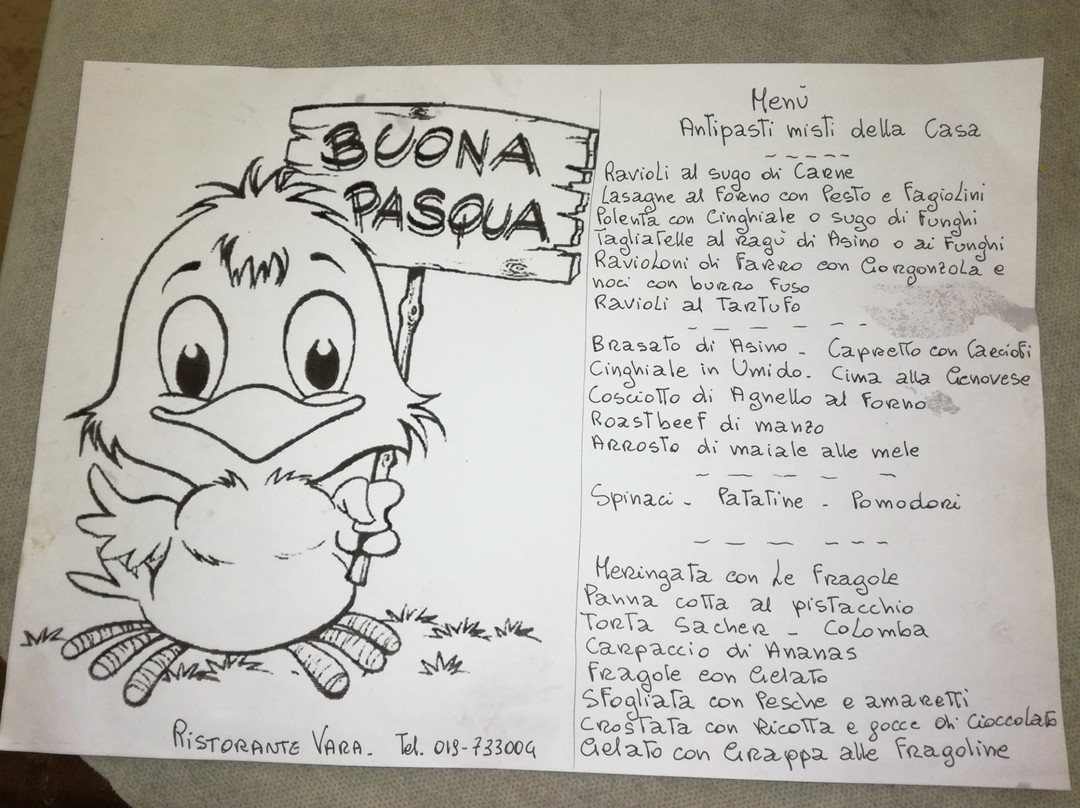 BUONA
PASQUA
RISTORANTE VARA. Tel. 019-733009
Menù
Antipasti misti della Casa
Ravioli al sugo di Carne
Lasagne al Forno con Pesto e Fagiolini
Polenta con Cinghiale o sugo di Funghi
Tagliatelle al Ragù di Asino o ai Funghi
Ravioloni di Farro con Gorgonzola e
noci con burro fuso
Ravioli al Tartufo
Brasato di Asino - Capretto con Carciofi
Cinghiale in Umido. Cima alla Genovese
Cosciotto di Agnello al Forno
Roastbeef di manzo
Arrosto di maiale alle mele
Spinaci - Patatine - Pomodori
Meringata con Le Fragole
Panna cotta al pistacchio
Torta Sacher - Colomba
Carpaccio di Ananas
Fragole con Gelato
Sfogliata con Pesche e amaretti
Crostata con Ricotta e gocce di Cioccolato
Gelato con Grappa alle Fragoline